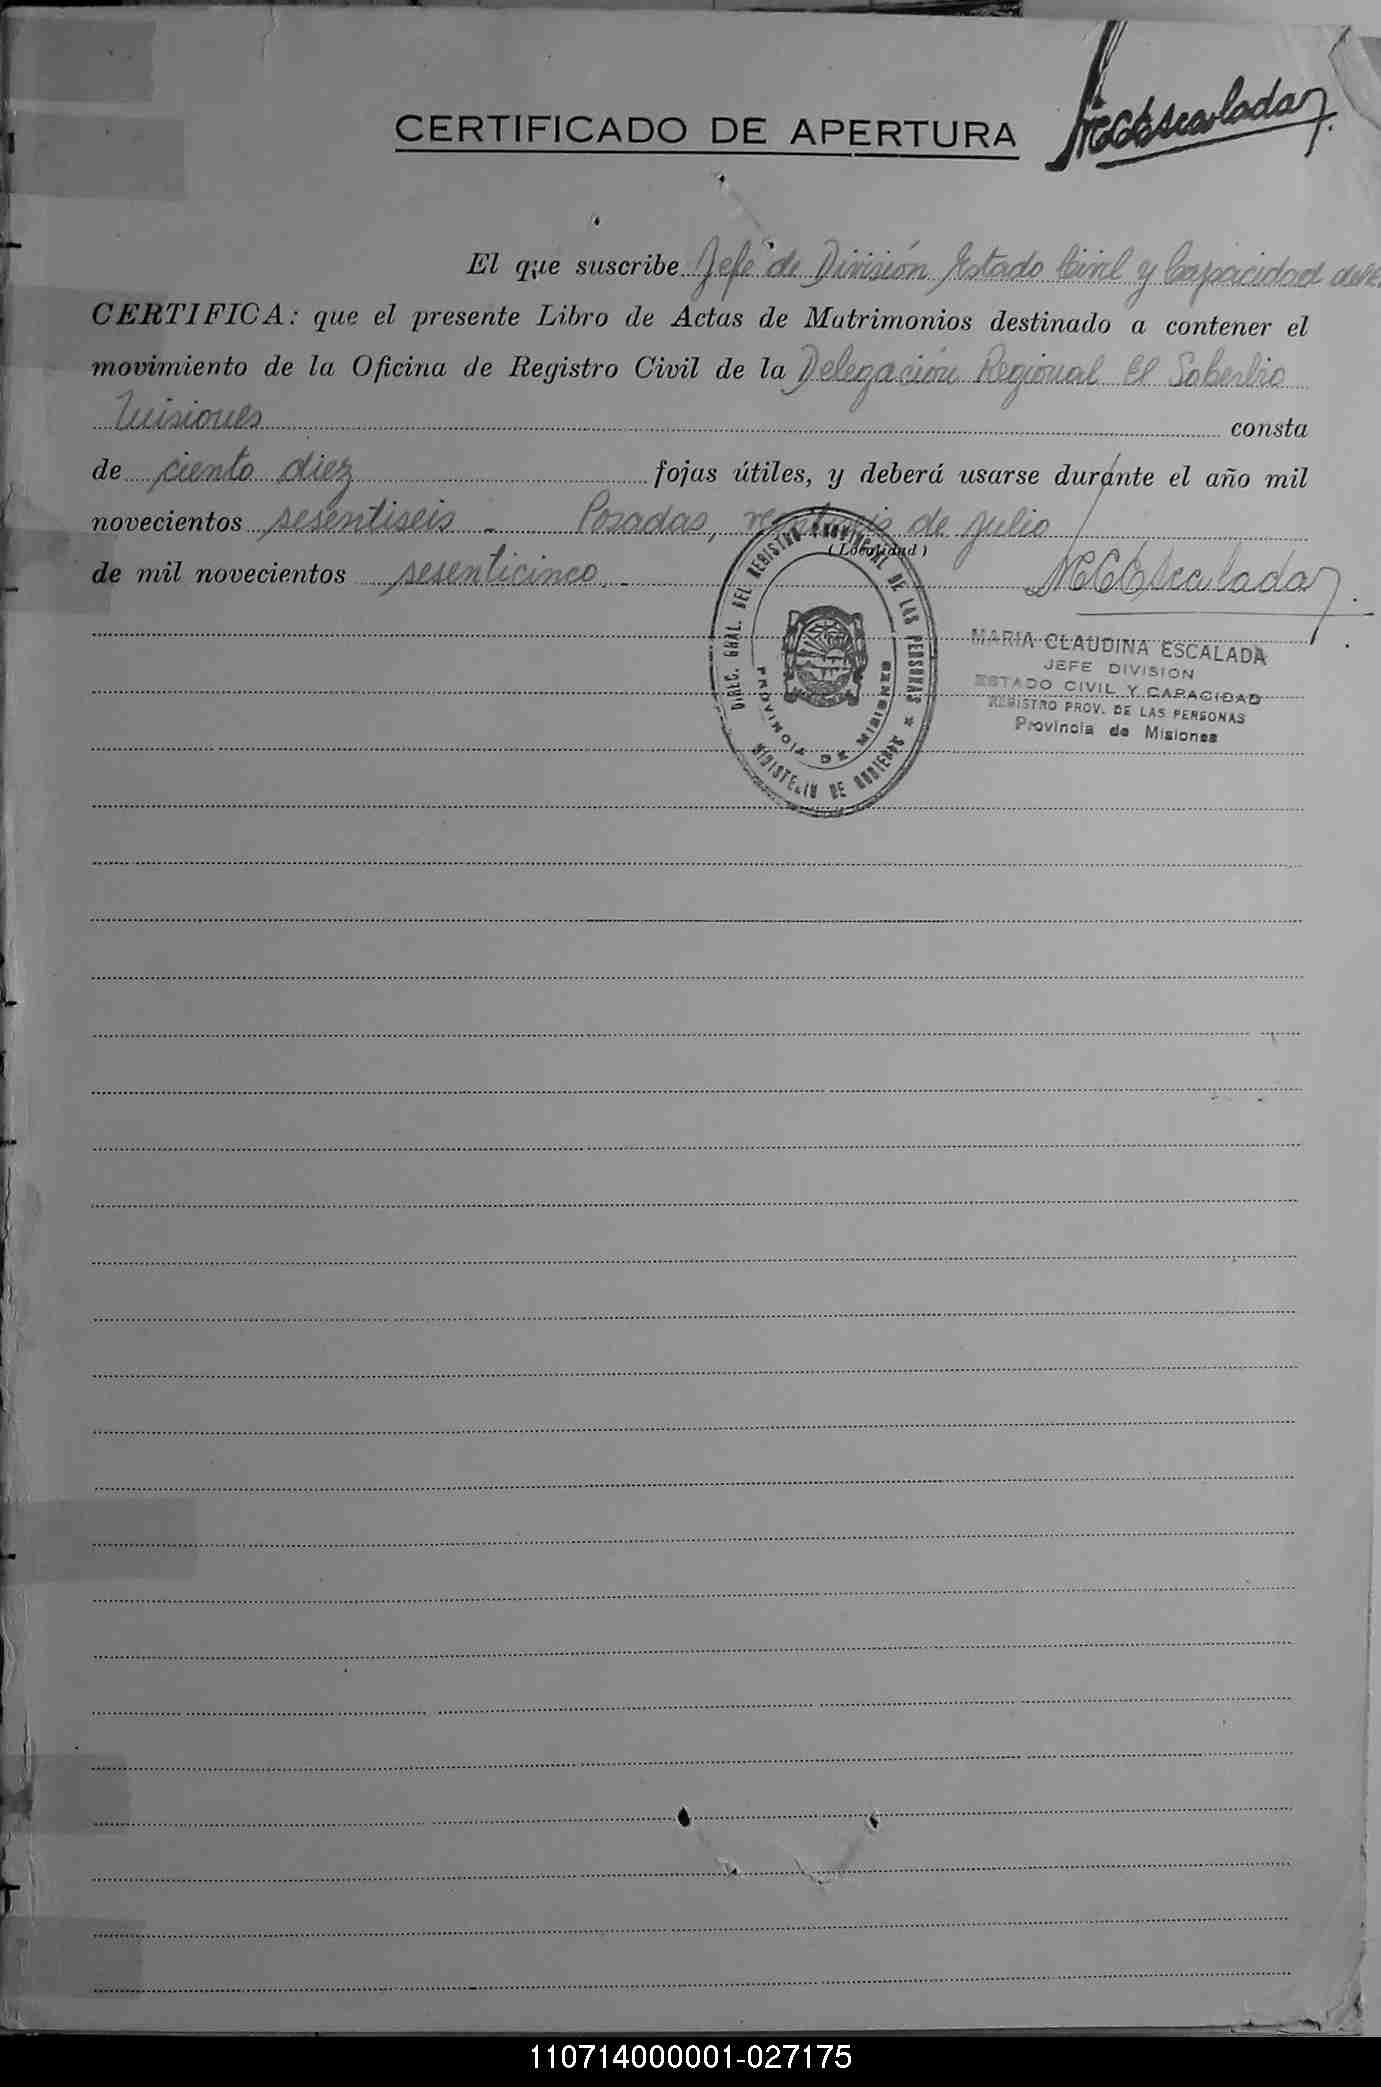 CERTIFICADO DE APERTURA
MCEscalada
El que suscribe Jefe de División Estado Civil y Capacidad
CERTIFICA: que el presente Libro de Actas de Matrimonios destinado a contener el
movimiento de la Oficina de Registro Civil de la Delegación Regional El Soberbio
Misiones consta
de ciento diez fojas útiles, y deberá usarse durante el año mil
novecientos sesentiseis - Posadas, de julio
(Localidad)
de mil novecientos sesenticinco.-
MCEscalada
MARIA CLAUDINA ESCALADA
JEFE DIVISION
ESTADO CIVIL Y CAPACIDAD
REGISTRO PROV. DE LAS PERSONAS
Provincia de Misiones
DIREC. GRAL. DEL REGISTRO PROVINCIAL DE LAS PERSONAS
PROVINCIA DE MISIONES
MINISTERIO DE GOBIERNO
110714000001-027175